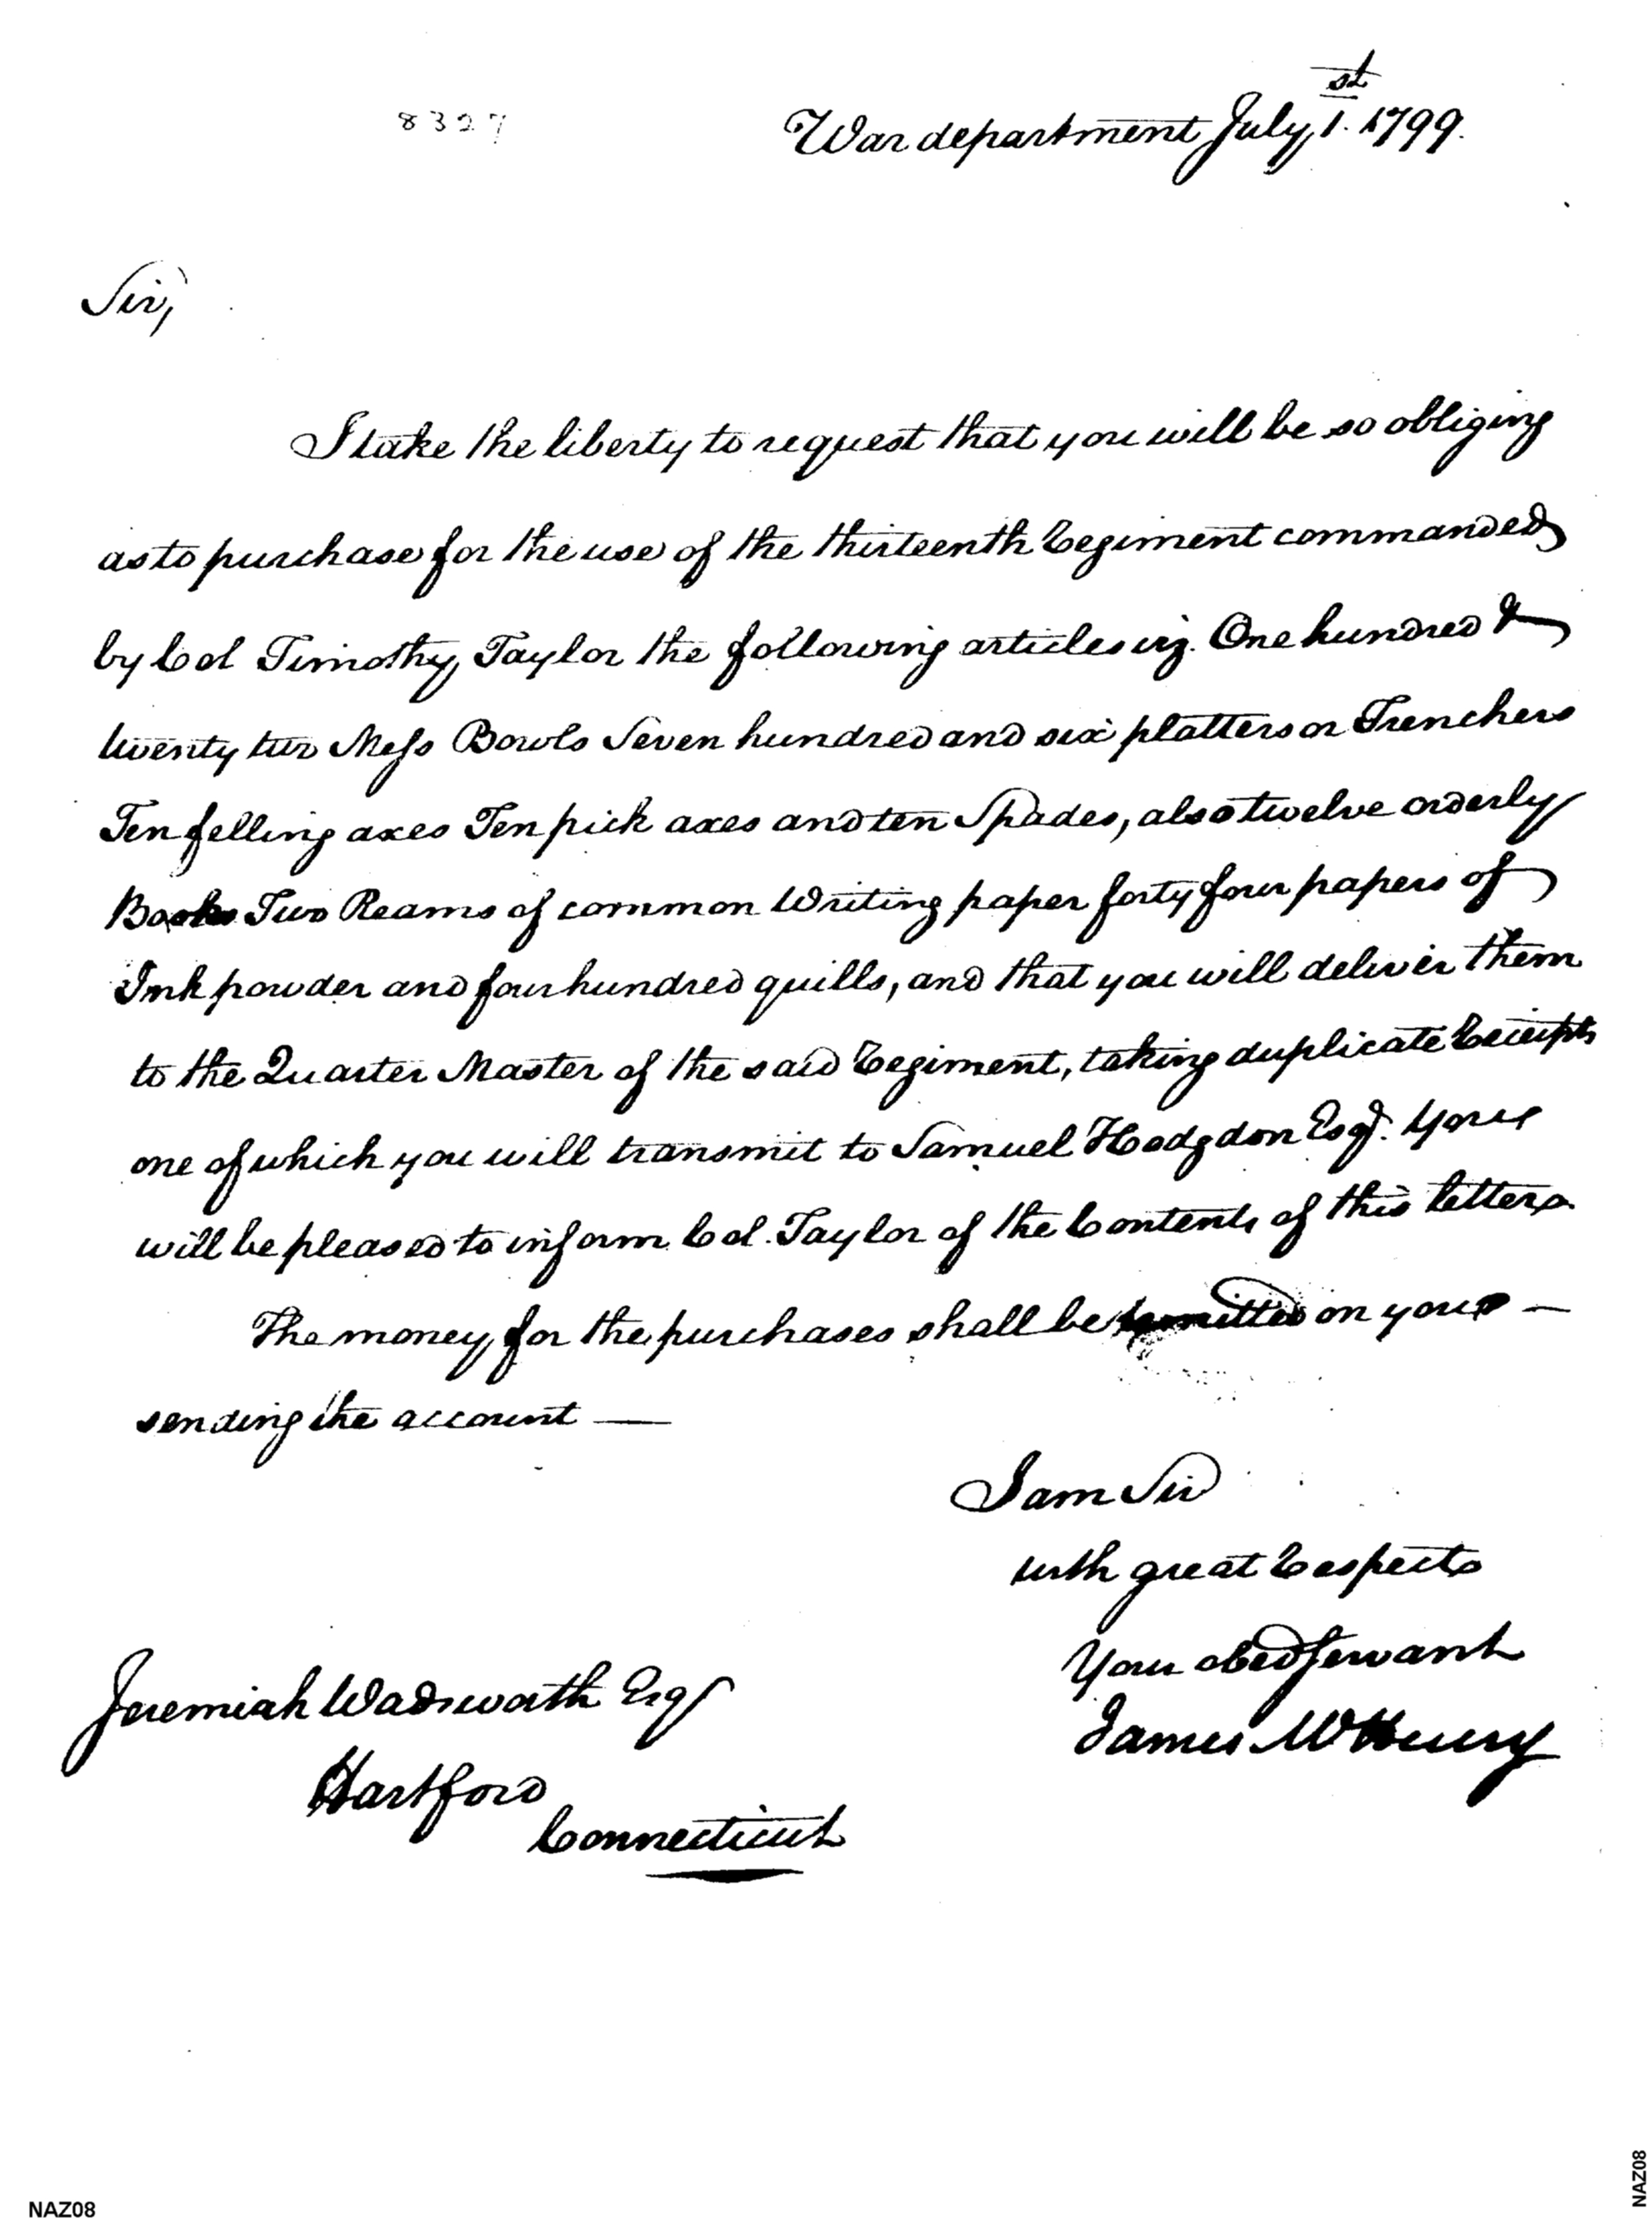 8327
War department July 1.st 1799.
Sir,
I take the liberty to request that you will be so obliging
as to purchase for the use of the thirteenth Regiment commanded
by Col Timothy Taylor the following articles viz. One hundred &
twenty two Mess Bowls Seven hundred and six platters or Trenchers
Ten felling axes Ten pick axes and ten Spades, also twelve orderly
Books Two Reams of common Writing paper forty four papers of
Ink powder and four hundred quills, and that you will deliver them
to the Quarter Master of the said Regiment, taking duplicate Receipts
one of which you will transmit to Samuel Hodgdon Esqr. You
will be pleased to inform Col. Taylor of the Contents of this letter
The money for the purchases shall be remitted on your —
sending the account —
I am Sir
with great Respect
Your obed Servant
James McHenry
Jeremiah Wadsworth Esqr
Hartford
Connecticut
NAZ08
NAZ08